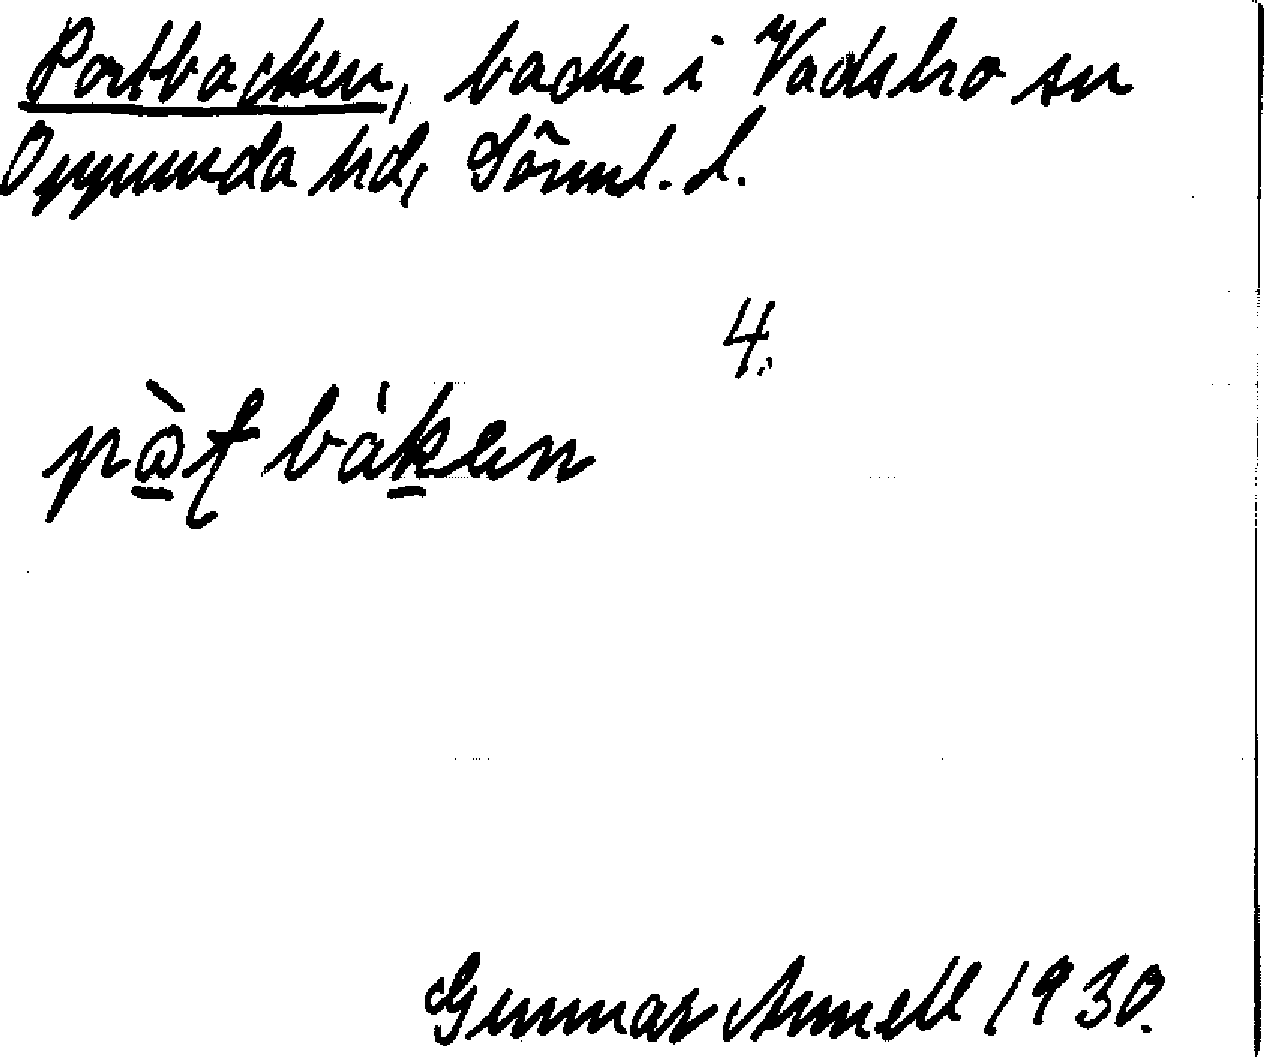 Portbacken, backe i Vadsbro sn
Oppunda hd, Sörml. l.
4.
pàt bàken
Gunnar Armell 1930.